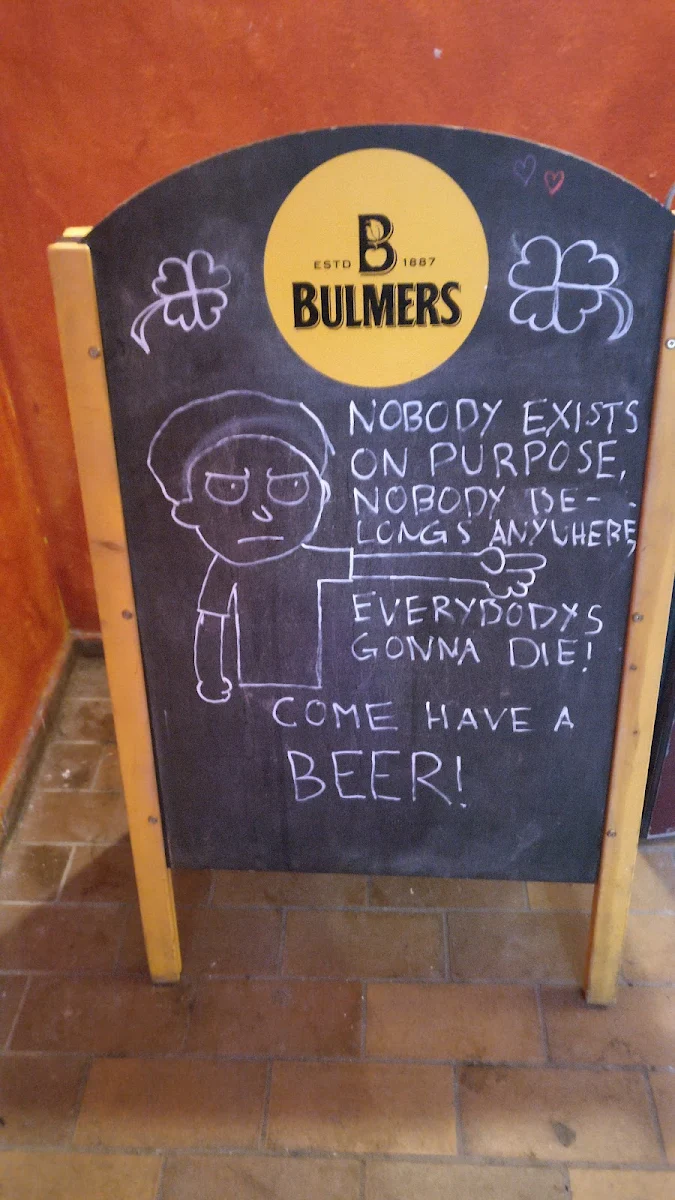 ESTD B 1887
BULMERS
NOBODY EXISTS
ON PURPOSE,
NOBODY BE-
LONGS ANYWHERE,
EVERYBODYS
GONNA DIE!
COME HAVE A
BEER!